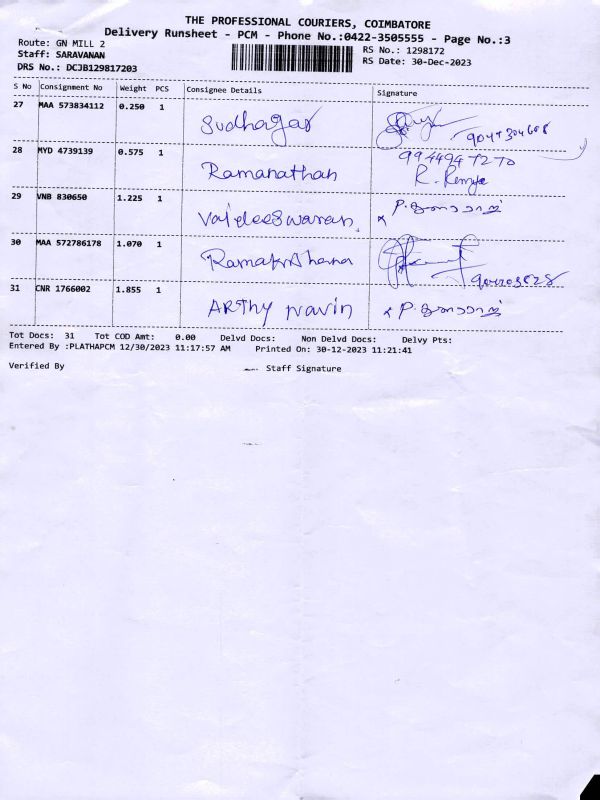 THE PROFESSIONAL COURIERS, COIMBATORE
Delivery Runsheet - PCM - Phone No.:0422-3505555 - Page No.:3
Route: GN MILL 2
RS No.: 1298172
Staff: SARAVANAN
RS Date: 30-Dec-2023
DRS No.: DCJB129817203
S No Consignment No Weight PCS Consignee Details Signature
27 MAA 573834112 0.250 1 Sudhagar
28 MYD 4739139 0.575 1 Ramanathan 99449472 70
R. Remya
29 VNB 830650 1.225 1 Vaideeswaran
30 MAA 572786178 1.070 1 Ramakrishana
31 CNR 1766002 1.855 1 ARthy Navin
Tot Docs: 31 Tot COD Amt: 0.00 Delvd Docs: Non Delvd Docs: Delvy Pts:
Entered By :PLATHAPCM 12/30/2023 11:17:57 AM Printed On: 30-12-2023 11:21:41
Verified By Staff Signature